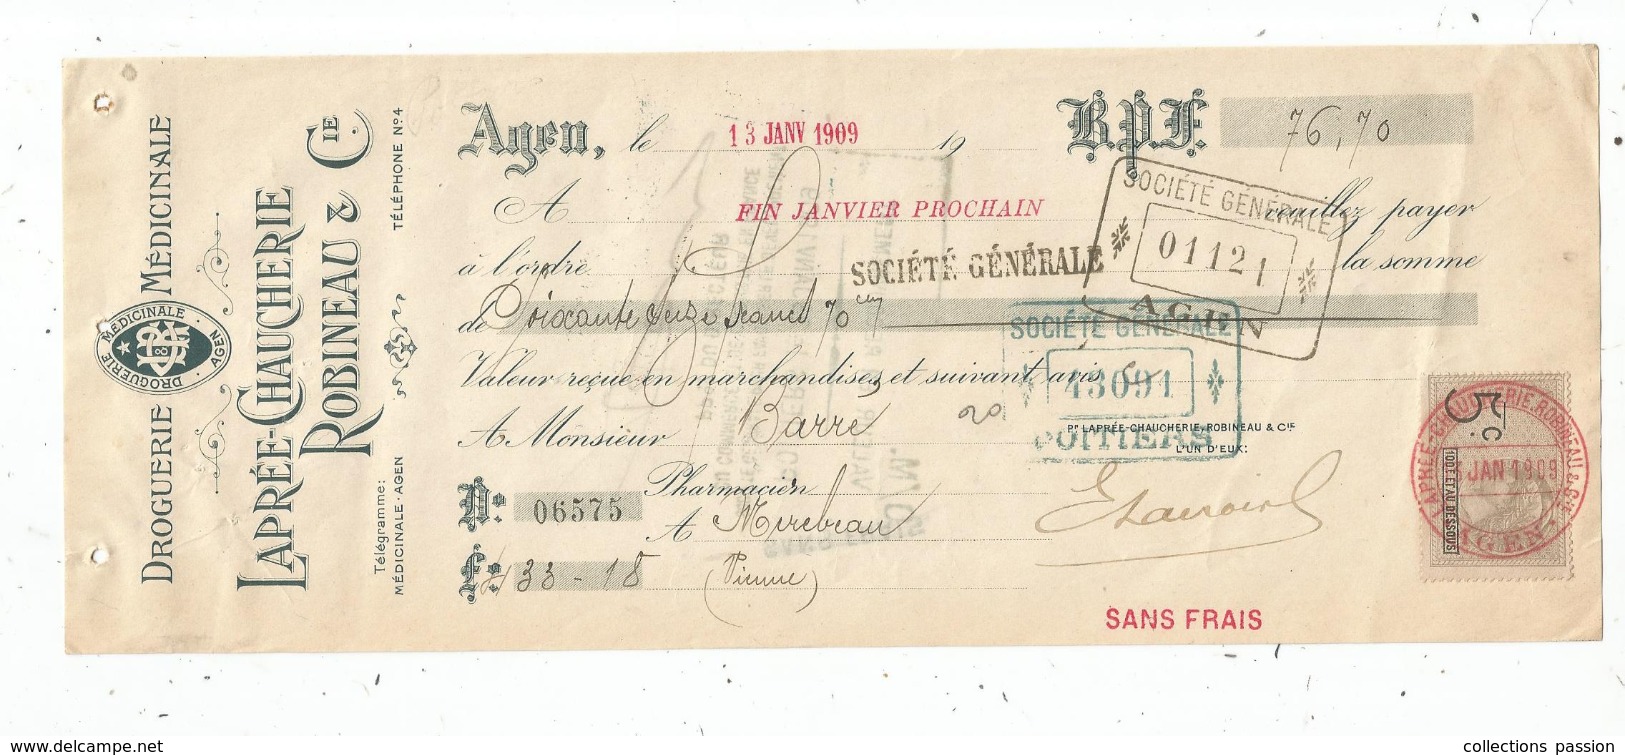 DROGUERIE MÉDICINALE
DROGUERIE MÉDICINALE · AGEN
LAPRÉE-CHAUCHERIE
ROBINEAU & CIE.
Télégramme:
MÉDICINALE-AGEN
TÉLÉPHONE No 4
Agen, le 13 JANV 1909 19
B.P.F. 76,70
A FIN JANVIER PROCHAIN veuillez payer
à l'ordre SOCIÉTÉ GÉNÉRALE la somme
de Soixante Seize francs 70 cm
Valeur reçue en marchandises et suivant avis
A Monsieur Barré
20
Pharmacien
A Mirebeau
(Vienne)
No 06575
Fo 33-18
SOCIÉTÉ GÉNÉRALE
01121
AGEN
SOCIÉTÉ GÉNÉRALE
43091
POITIERS
Pr LAPRÉE-CHAUCHERIE, ROBINEAU & CIE
L'UN D'EUX:
SANS FRAIS
5 c.
100F. ET AU DESSOUS
LAPRÉE-CHAUCHERIE, ROBINEAU & CIE
JAN 1909
AGEN
www.delcampe.net
collections passion